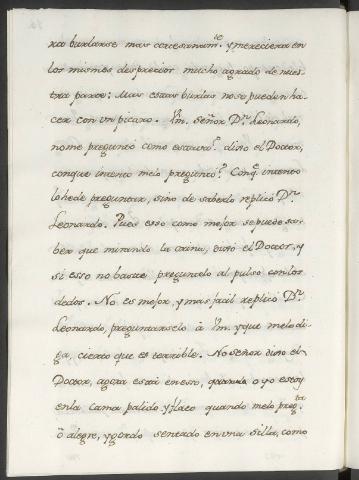 ra burlarse mas cortesanam.te y mereciera en
los mismos desprecios mucho agrado de nues-
tra parte: Mas estas burlas no se pueden ha-
cer con un picaro. Vm. señor D.r Leonardo,
no me preguntó como estava? dixo el Doctor,
conque intento me lo preguntó? Con q.e intento
lo he de preguntar, sino de saberlo replicó D.r
Leonardo. Pues esso como mejor se puede sa-
ber que mirando la orina, dixo el Doctor, y
si esso no basta preguntelo al pulso con los
dedos. No es mejor, y mas facil replicó D.r
Leonardo, preguntarselo à Vm. y que me lo di-
ga, cierto que es terrible. No señor dixo el
Doctor, agora està en esso, quando o yo estoy
en la cama palido y flaco quando me lo preg.ta
ò alegre, y gordo sentado en una silla, como